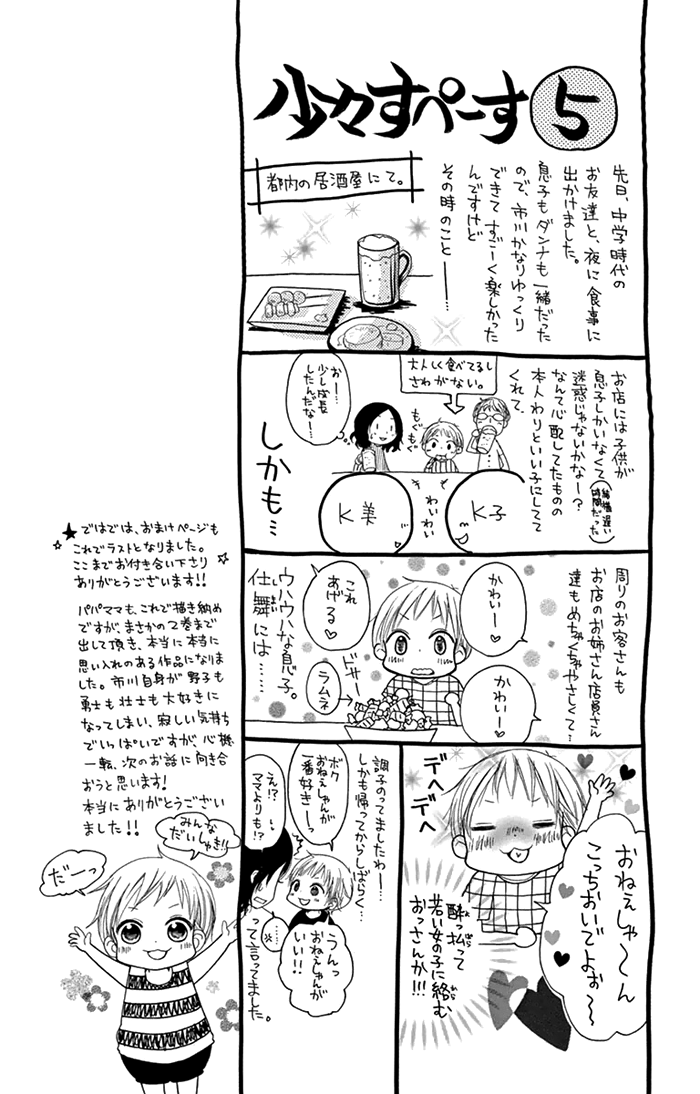 少々すぺーす 5
先日、中学時代の
お友達と、夜に食事に
出かけました。
息子もダンナも一緒だった
ので、市川かなりゆっくり
できてすごーく楽しかった
んですけど
その時のこと―――…
都内の居酒屋にて。
お店には子供が
息子しかいなくて
迷惑じゃないかなー?
(結構遅い
時間だった)
なんて心配してたものの
本人わりといい子にしてて
くれて、
大人しく食べてるし
さわがない。
おー…
少し成長
したんだなー…
もぐ
もぐ
K子
わい
わい
K美
しかも…
周りのお客さんも
お店のお姉さん店員さん
達もめちゃくちゃやさしくて…
かわいー♡
かわいー♡
これ
あげる♡
ドサー
ラムネ
ウハウハな息子。
仕舞いには……
デヘ
デヘ
おねぇしゃ〜ん
こっちおいでよぉ〜
酔っ払って
若い女の子に絡む
おっさんか!!!
調子のってましたわー…
しかも帰ってからしばらく…
ボク
おねえしゃんが
一番好きーっ
え!?
ママよりも!?
うんっ
おねえしゃんが
いい!!
って言ってました。
★ではでは、おまけページも
これでラストとなりました。
ここまでお付き合い下さり
ありがとうございます!!
パパママも、これで描き納め
ですが、まさかの7巻まで
出して頂き、本当に本当に
思い入れのある作品になりま
した。市川自身が野子も
勇士も壮士も大好きに
なってしまい、寂しい気持ち
でいっぱいですが、心機
一転、次のお話に向き合
おうと思います!
本当にありがとうござい
ました!!
みんな
だいしゅき!!
だーっ